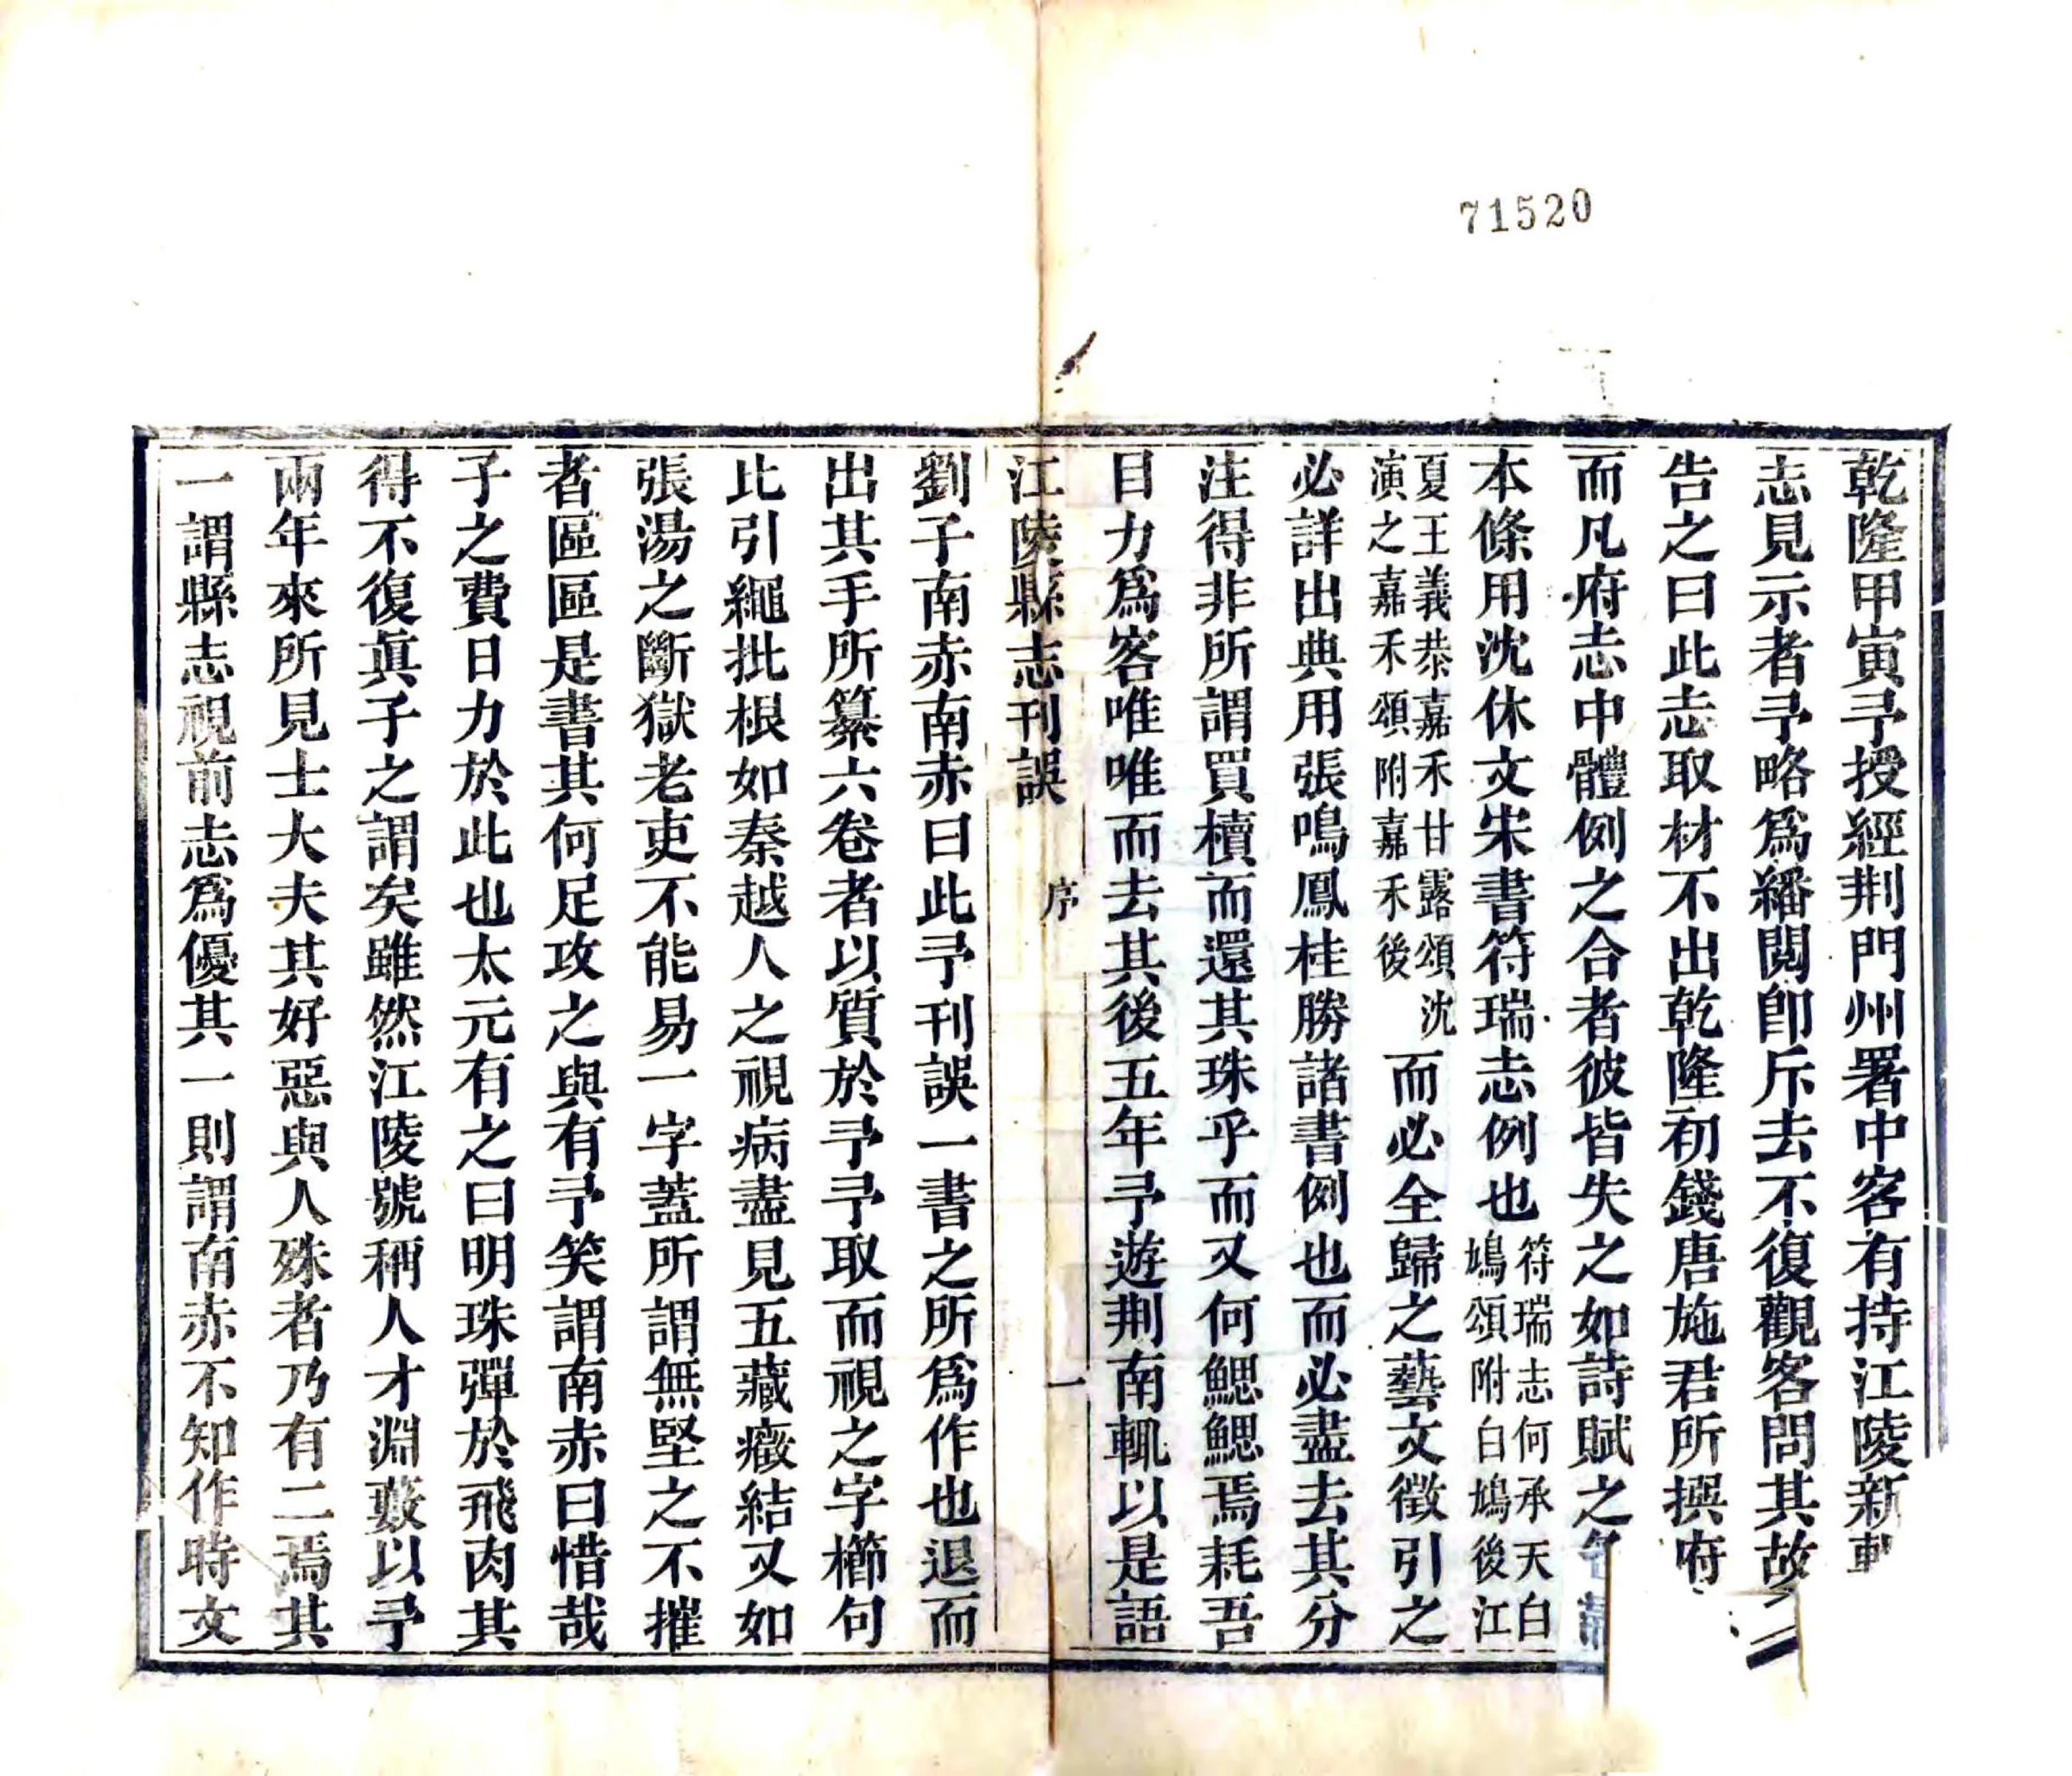 71520
乾隆甲寅予授經荆門州署中客有持江陵新
志見示者予略爲繙閱卽斥去不復觀客問其故
告之曰此志取材不出乾隆初錢唐施君所撰府
而凡府志中體例之合者彼皆失之如詩賦之
本條用沈休文宋書符瑞志例也符瑞志何承天白鳩頌附白鳩後江
夏王義恭嘉禾甘露頌沈演之嘉禾頌附嘉禾後而必全歸之藝文徵引之
必詳出典用張鳴鳳桂勝諸書例也而必盡去其分
注得非所謂買櫝而還其珠乎而又何鰓鰓焉耗吾
目力爲客唯唯而去其後五年予遊荆南輒以是語
江陵縣志刊誤 序 一
劉子南赤南赤曰此予刊誤一書之所爲作也退而
出其手所纂六卷者以質於予予取而視之字櫛句
比引繩批根如秦越人之視病盡見五藏癥結又如
張湯之斷獄老吏不能易一字蓋所謂無堅之不摧
者區區是書其何足攻之與有予笑謂南赤曰惜哉
子之費日力於此也太元有之曰明珠彈於飛肉其
得不復眞子之謂矣雖然江陵號稱人才淵藪以予
兩年來所見士大夫其好惡與人殊者乃有二焉其
一謂縣志視前志爲優其一則謂南赤不知作時文